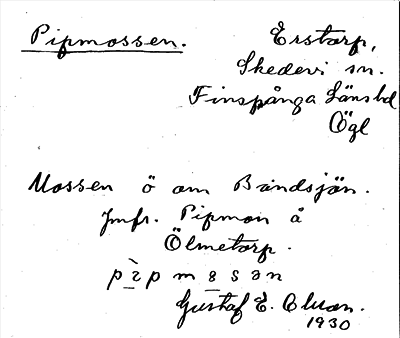 Pipmossen.
Erstorp,
Skedevi sn.
Finspånga Länshd
Ögl
Mossen ö om Båndsjön.
Jmfr. Pipmon å
Ölmetorp.
Gustaf E.
1930